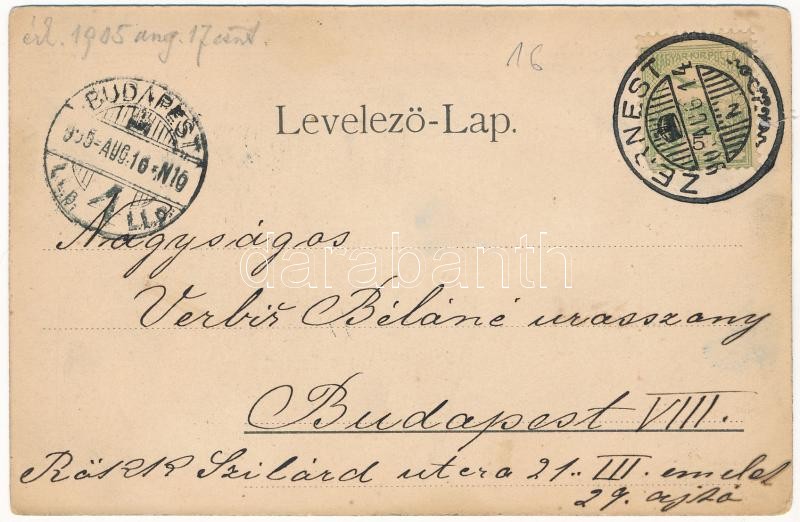 érk. 1905 aug. 17 csüt.
16
BUDAPEST
905 AUG. 16 N 10
1
MAGYAR KIR. POSTA
ZERNEST
Levelező-Lap.
darabanth
Nagyságos
Verbiř Béláné urasszony
Budapest VIII.
Rökk Szilárd utcza 21. III. emelet
29. ajtó